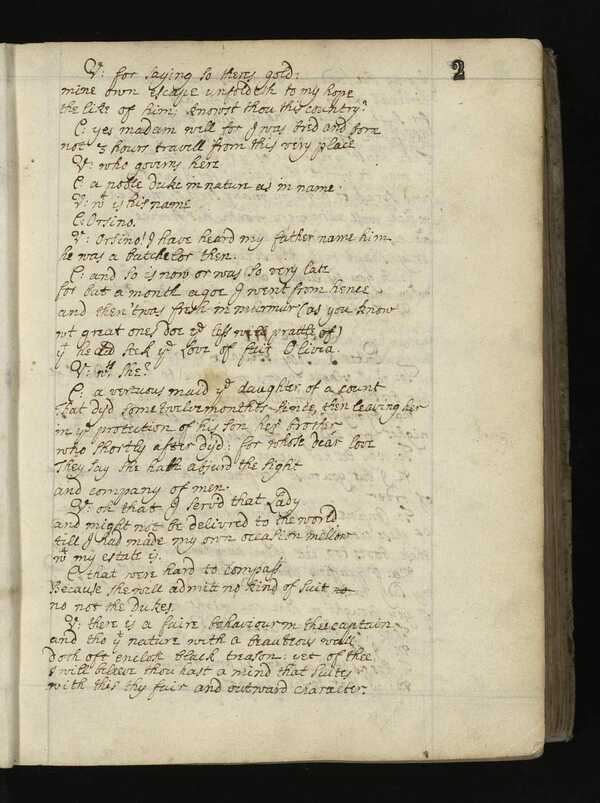 2
V: for saying so theres gold:
mine own escape unfoldeth to my hope
the like of him; knowst thou this country?
C: yes madam well for I was bred and born
not 3 hours travell from this very place
V: who governs here
C: a noble duke in nature as in name.
V: wt is his name
C: Orsino.
V: Orsino! I have heard my father name him
he was a batchelor then.
C: and so is now or was so very late
for but a month agoe I went from hence
and then 'twas fresh in murmur (as you know
wt great ones doe ye less will prattle of)
yt he did seek ye Love of fair Olivia.
V: wts she?
C: a vertuous maid ye daughter of a count
that dyd some twelvemonths since, then leaving her
in ye protection of his son her brother
who shortly after dyd: for whose dear love
They say she hath abjurd the sight
and company of men.
V: oh that I servd that Lady
and might not be delivred to the world
till I had made my own occasion mellow
wt my estate is.
C: that were hard to compass
Because she will admitt no kind of suit no
no not the dukes.
V: there is a faire behaviour in thee captain
and tho yt nature with a beauteous wall
doth oft enclose black treason: yet of thee
I will beleeve thou hast a mind that suites
with this thy fair and outward character.